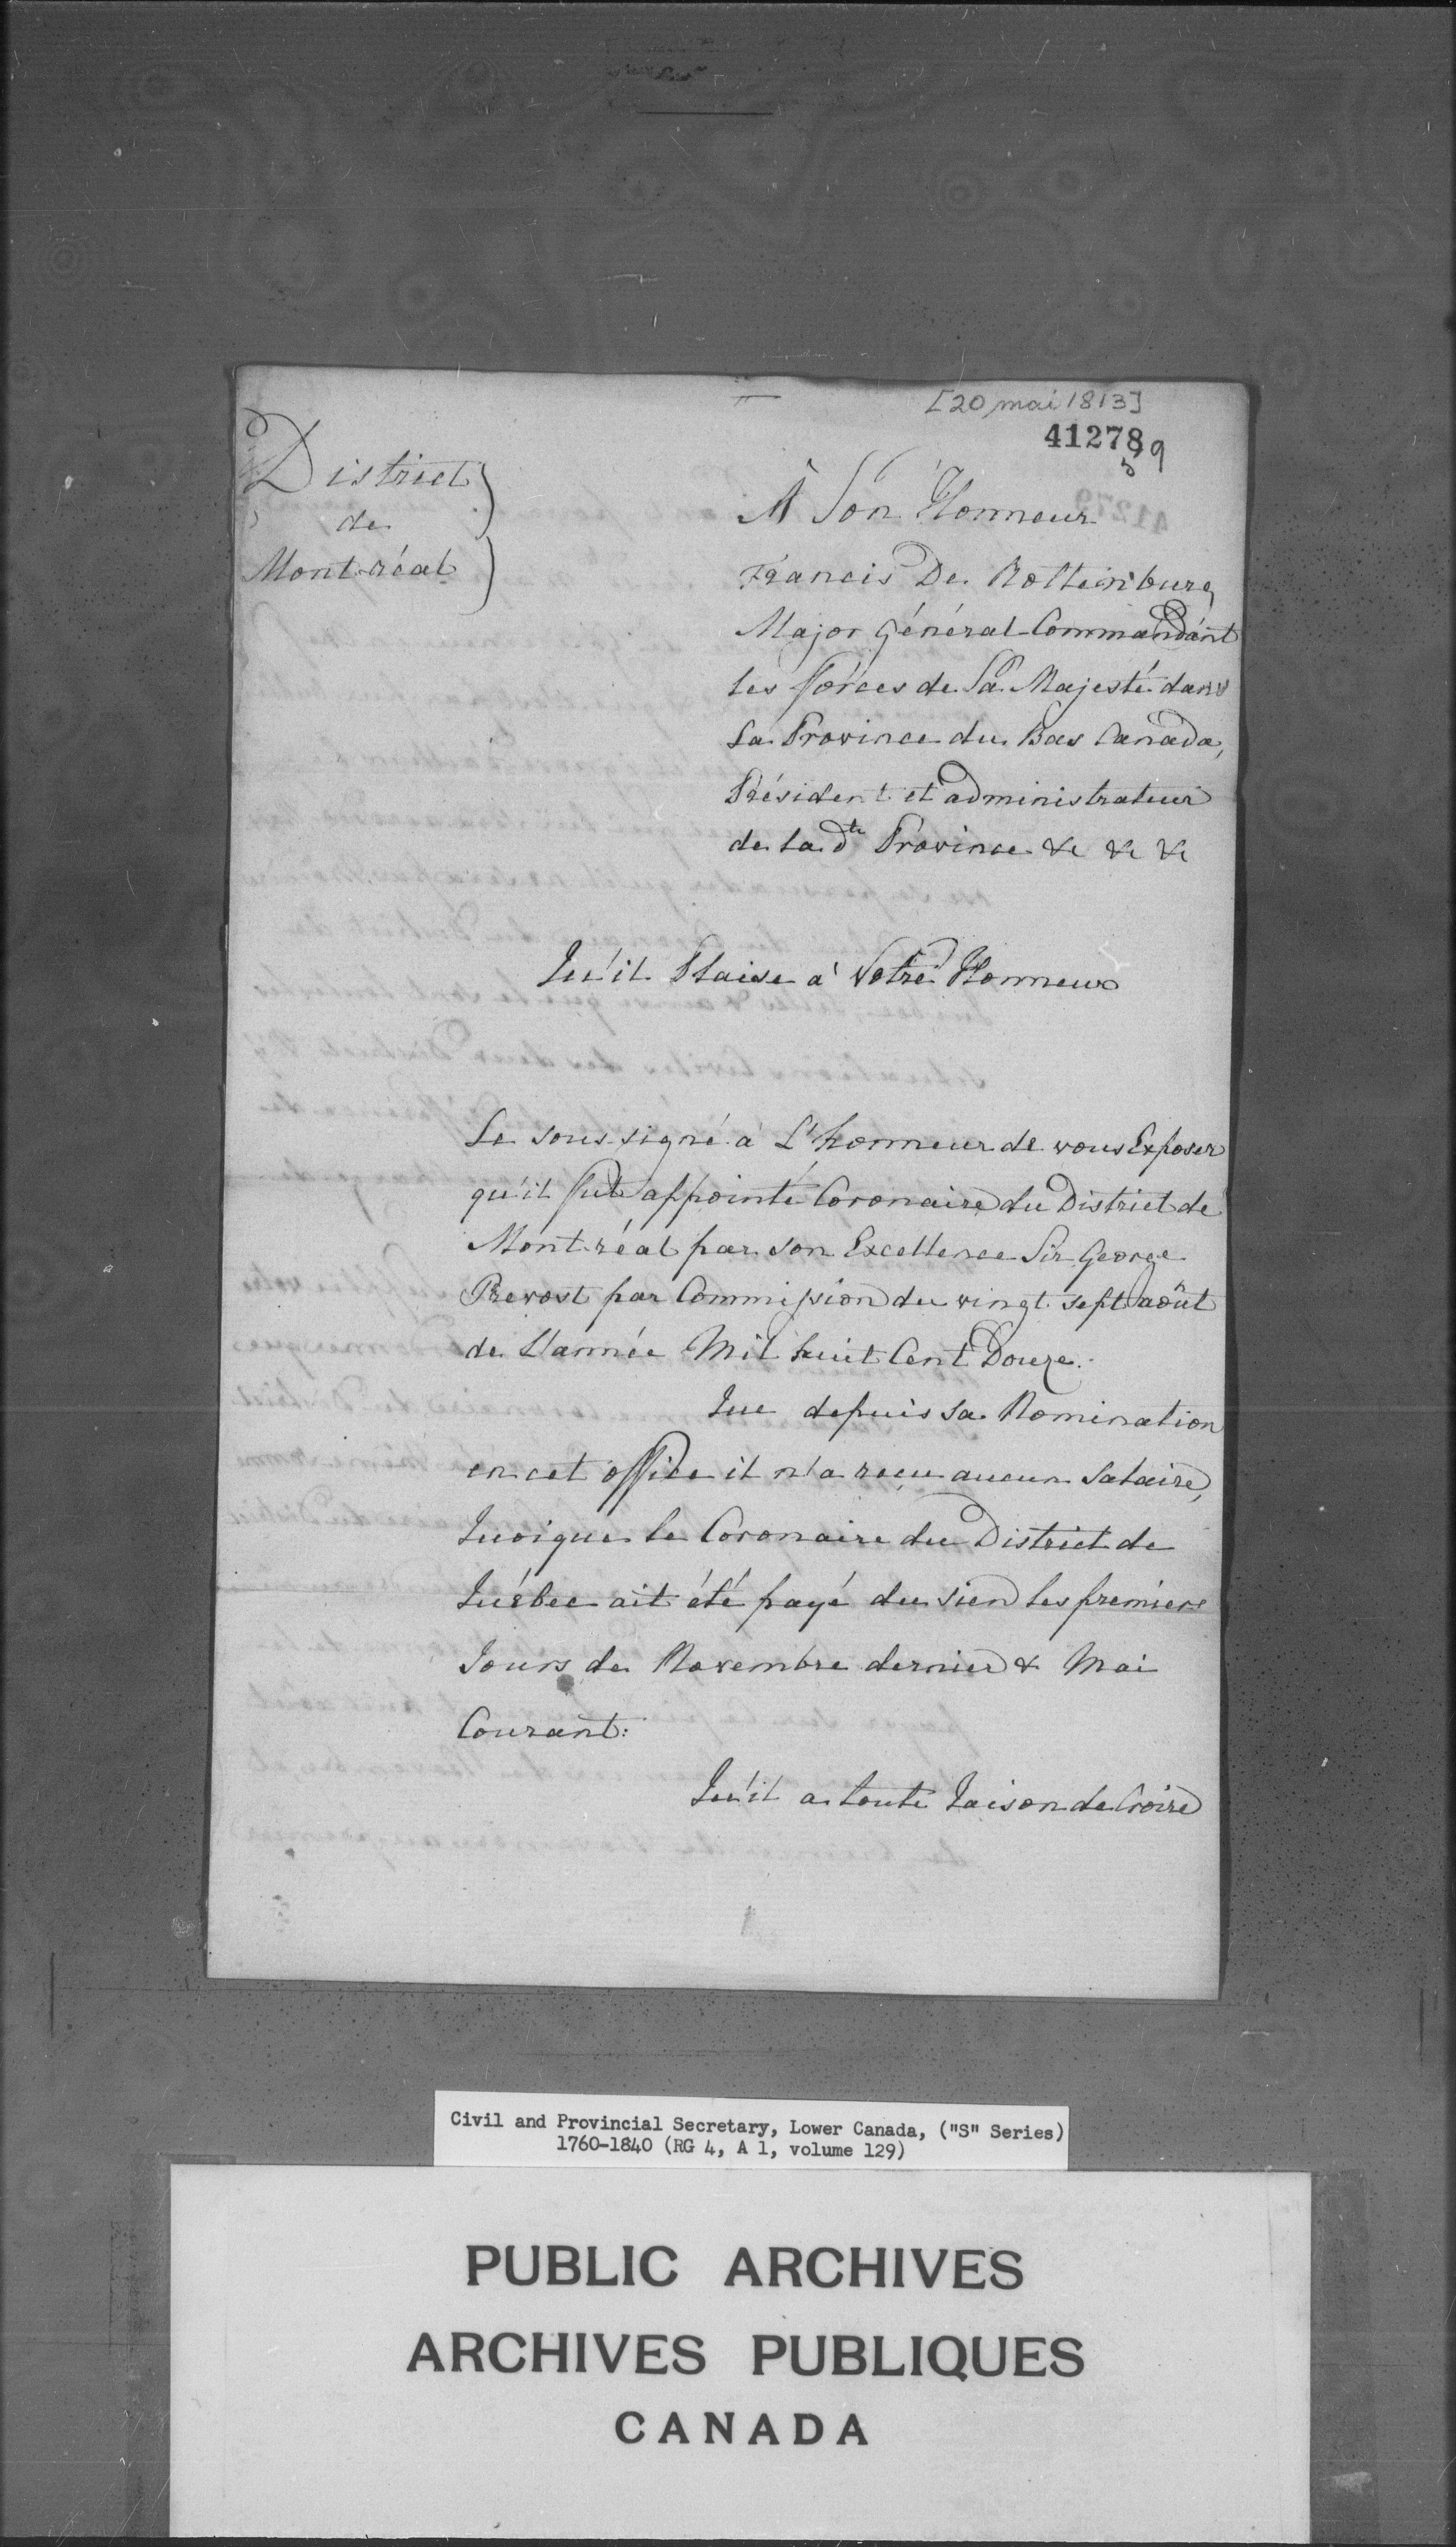 [20 mai 1813]
41278
59
District
de
Montréal
A Son Honneur
Francis De Rottenburg
Major Général Commandant
les forces de Sa Majesté dans
La Province du Bas Canada,
Président et administrateur
de la dte Province &c &c &c
Qu'il Plaise a' Votre Honneur
Le sous signé a L'honneur de vous Exposer
qu'il fut appointé Coronaire du District de
Montréal par son Excellence Sir George
Prevost par Commission du vingt sept août
de L'année Mil huit Cent Douze.
Que depuis sa Nomination
en cet office il n'a reçu aucun Salaire,
Quoique le Coronaire du District de
Québec ait été payé du sien les premiers
Jours de Novembre dernier & Mai
Courant:
Qu'il a toute Raison de Croire
Civil and Provincial Secretary, Lower Canada, ("S" Series)
1760-1840 (RG 4, A 1, volume 129)
PUBLIC ARCHIVES
ARCHIVES PUBLIQUES
CANADA